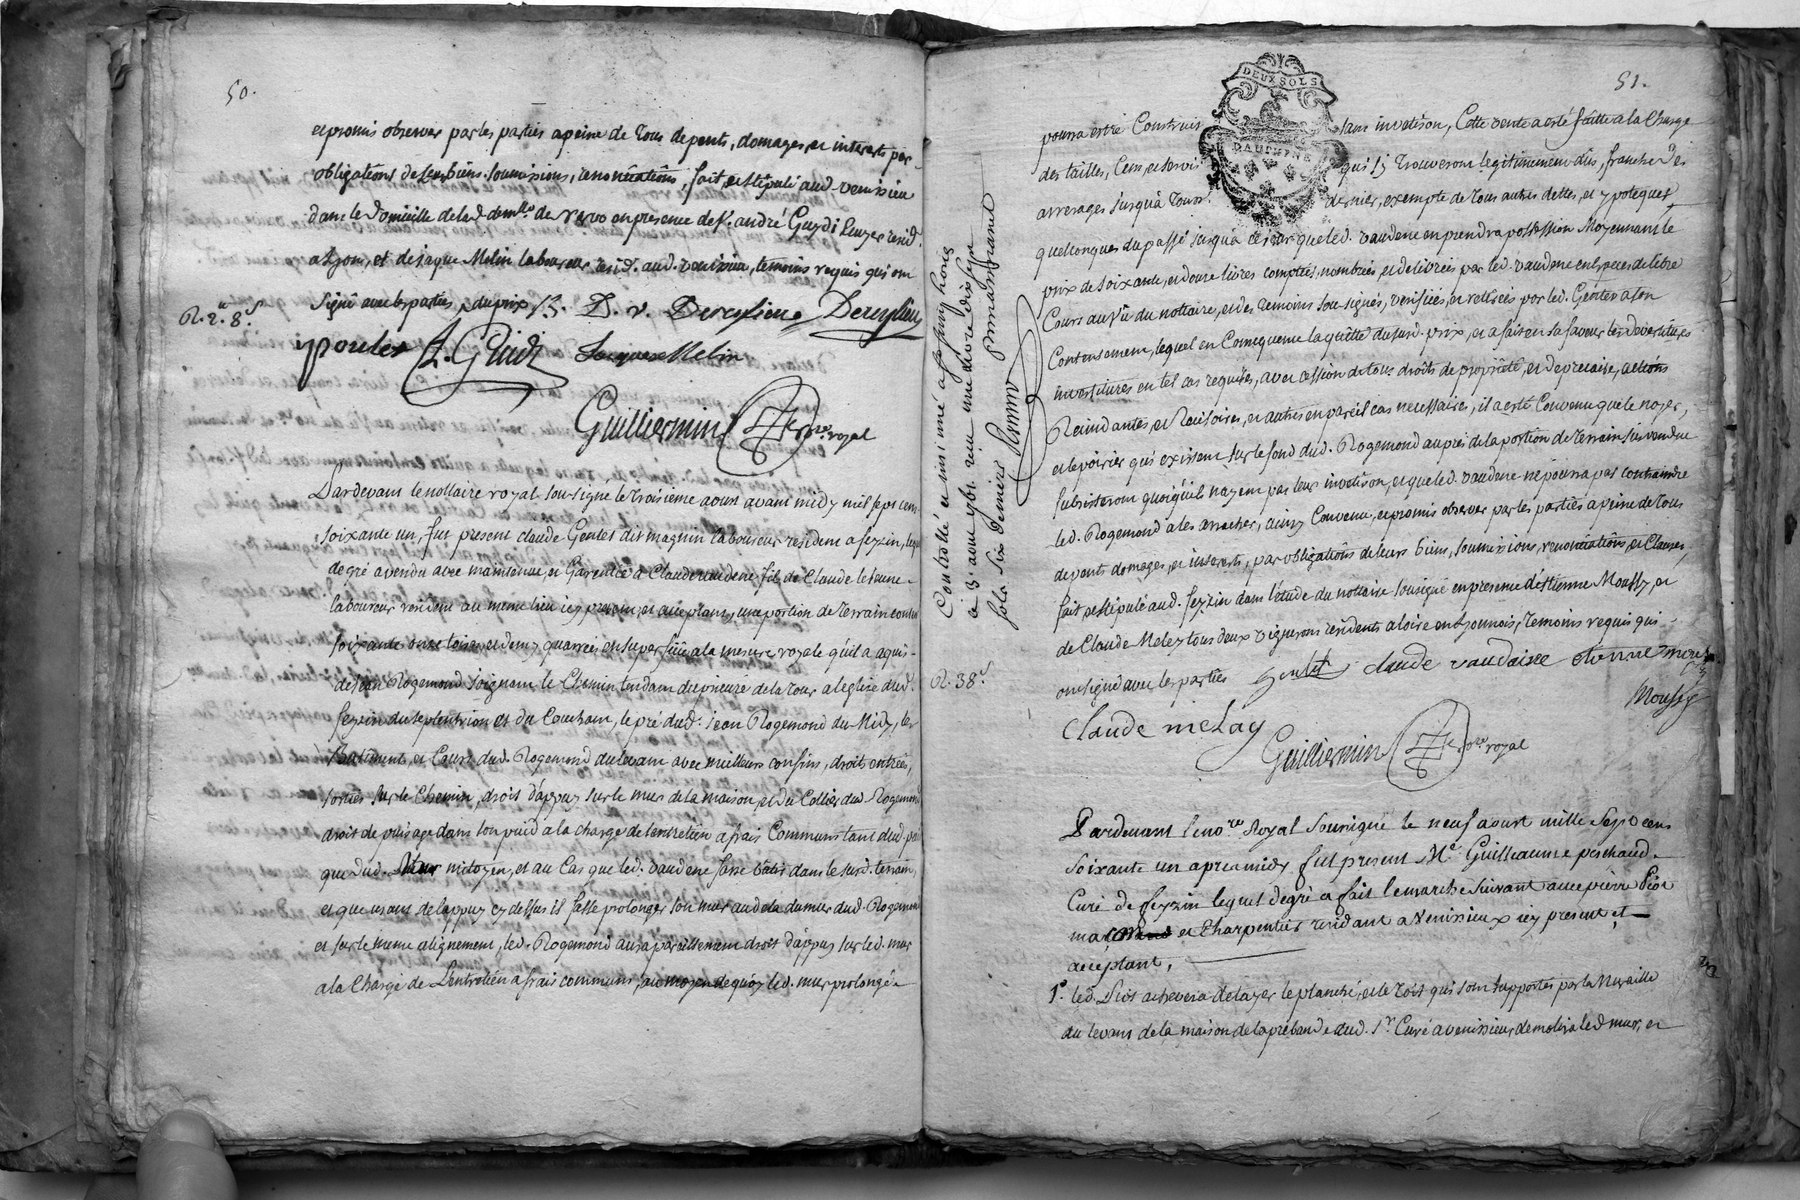 50.
et promis observer par les parties a peine de tous depents, domages et interests par
obligations de leurs biens soumissions, renonciations, fait et stipulé aud. venissieu
dans le domicille de lad. demlle de en presence de sr. andré Guydi resid.
a Lyon, et de jaque Melin laboureur resid. aud. venissieu, temoins requis qui ont
signé avec les parties
R. 2.# 8.s
D. v.
A. Guidi Jacques Melin
Guilliermin nore. royal
Pardevant le nottaire royal sousigné le troisieme aoust avant midy mil sept cent
soixante un, fut present claude Gentet dit magnin laboureur résident a feyzin, lequel
de gré a vendu avec maintenue, et Garentie à Claude vaudene fils de Claude le jeune
laboureur resident au meme lieu icy present, et acceptant, une portion de terrain contenant
soixante onze toises et demy quarrées en superficie a la mesure royale qu'il a aquis
de jean Rogemond joignant le Chemin tendant du prieuré de la tour a leglise dud.
feyzin du septentrion et du Couchant, le pré dud. jean Rogemond du Midy, les
Batiments, et Cour dud. Rogemond du levant avec meilleurs confins, droits entrées,
sorties sur le chemin, droit d'appuy sur le mur de la maison, et du Collier dud. Rogemond
droit de puisage dans son puid a la charge de l'entretien a frais Communs tant dud. puid
que dud. Mur mitoyen, et au Cas que led. vaudene fasse bâtir dans le susd. terrain,
et que usant de lappuy cy dessus il fasse prolonger son mur audela du mur dud. Rogemond
et sur le meme alignement, led. Rogemond aura pareillement droit d'appuy sur led. mur
a la Charge de L'entretien a frais communs, au moyen de quoy led. mur prolongé
51.
DEUX SOLS
DAUPHINÉ
pourra estre Construit sans invetison, Cette vente a esté faitte a la Charge
des tailles, Cens, et servis qui s'y trouveront legitimement dus, franche des
arrerages jusqu'à tous dernier, exempte de tous autres dettes, et ypoteques
quelconques du passé jusqu'a ce jour que led. vaudene en prendra possession Moyennant le
prix de soixante, et douze livres comptées, nombrées et delivrées par led. vaudene en especes de libre
Cours au vû du nottaire, et des temoins sousignés, verifiées, et retirées par led. Gentet a son
Contentement, lequel en Consequence la quitté du susd. prix, et a fait en sa faveur les devestitures
investitures en tel cas requises, avec cession de tous droits de propriété, et de precaire, actions
Rescindantes, et Rescisoires, et autres en pareil cas necessaires, il a esté Convenu que le noyer,
et le poirier qui existent sur le fond dud. Rogemond aupres de la portion de terrain sus vendue
subsisteront quoiqu'ils n'ayent pas leur invetison, et que led. vaudene ne pourra pas contraindre
led. Rogemond a les arracher, ainsy Convenu, et promis observer par les parties a peine de tous
depents domages, et interests, par obligations de leurs biens, soumissions, renonciations, et Clauses,
fait et stipulé aud. feyzin dans l'etude du nottaire sousigné en presence d'estienne Moussy, et
de Claude Meley tous deux vignerons residents a loire en Lyonnois, temoins requis qui
ont signé avec les parties Gentet claude vaudaine etienne
mousy
claude melay
Guilliermin nore. royal
Controllé et insinué
a le 3 aout 1761. reçu une livre dix sept
sols six deniers
R. 38.s
Pardevant le nore Royal sousigné le neuf aoust mille Sept cens
soixante un apres midy fut present Me. Guilleaume peschaud
Curé de feyzin lequel de gré a fait le marché suivant avec pierre Piot
maçon et charpentier residant a Venissieux icy present et
acceptant,
1°. led. Piot achevera d'etayer le planché, et le toit qui sont supportés par la Muraille
du levant de la maison de la prébande dud. sr. Curé a venissieux, demolira led. mur, et